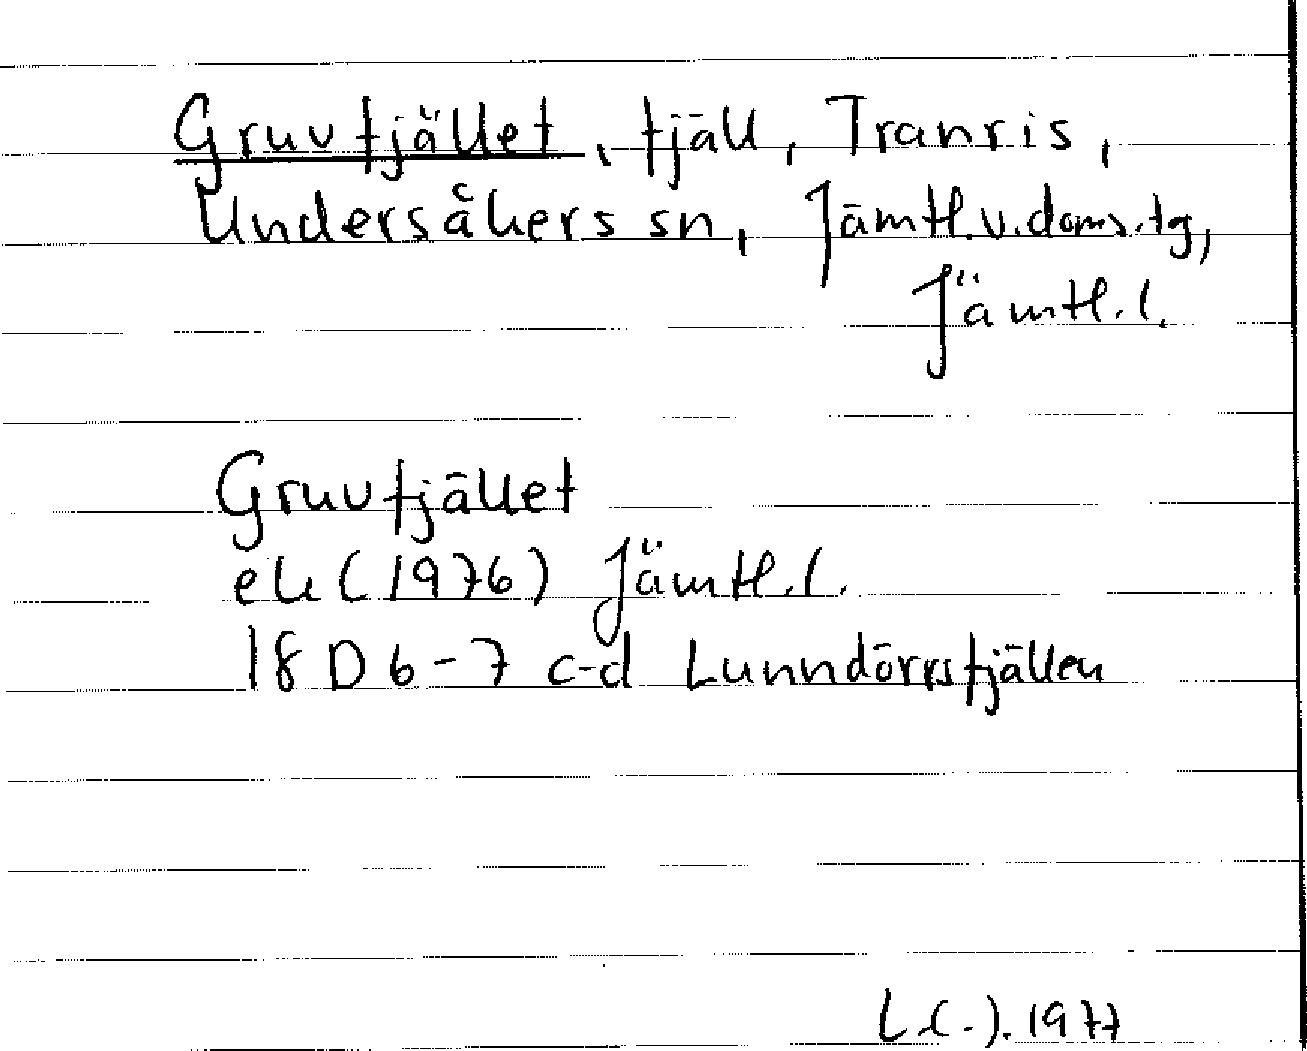 Gruvfjället, fjäll, Tranris,
Undersåkers sn, Jämtl.v.doms.tg,
Jämtl.l.
Gruvfjället
ek (1976) Jämtl.l.
18 D 6-7 c-d Lunndörrsfjällen
1977